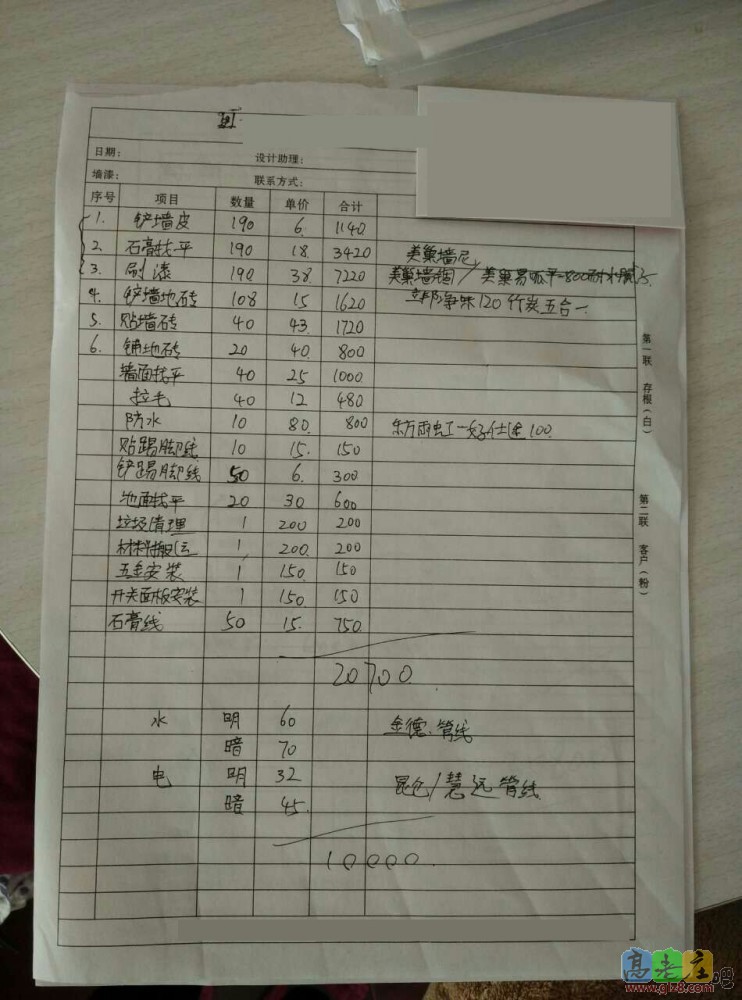 日期: 设计助理:
墙漆: 联系方式:
序号 项目 数量 单价 合计
1. 铲墙皮 190 6. 1140
2. 石膏找平 190 18. 3420 美巢墙尼
3. 刷漆 190 38. 7220 美巢墙锢/美巢易呱平-800耐水腻
4. 铲墙地砖 108 15 1620 立邦净味120竹炭五合一
5. 贴墙砖 40 43. 1720
6. 铺地砖 20 40. 800
墙面找平 40 25 1000
拉毛 40 12 480
防水 10 80. 800 东方雨虹-好仕途100.
贴踢脚线 10 15. 150
铲踢脚线 50 6. 300
地面找平 20 30 600
垃圾清理 1 200 200
材料搬运 1 200. 200
五金安装 1 150. 150
开关面板安装 1 150 150
石膏线 50 15. 750
20700.
水 明 60 金德.管线
暗 70
电 明 32 昆仑/慧远管线
暗 45.
10000.
第一联 存根(白)
第二联 客户(粉)
高老庄吧
www.glz8.com